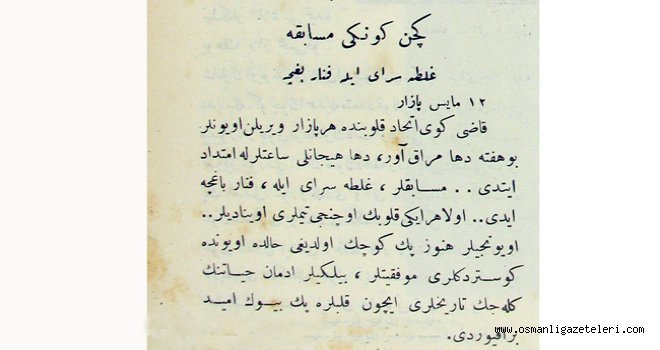 كچن كونكى مسابقه
غلطه سراى ايله فنار بغچه
١٢ مايس پازار
قاضى كوى اتحاد قلوبنده هر پازار ويريلن اويونلر
بو هفته دها مراق آور، دها هيجانلى ساعتلرله امتداد
ايتدى . . مسابقلر ، غلطه سراى ايله ، فنار باغچه
ايدى . . اولا هر ايكى قلوبك اوچنجى تيملرى اوينايلر . .
اويونجيلر هنوز پك كوچك اولديغى حالده اويونده
كوستردكلرى موفقيتلر ، بيلكيلر ادمان حياتنك
كله جك تاريخلرى ايچون قلبلره پك بيوك اميد
براقيوردى.
www.osmanligazeteleri.com